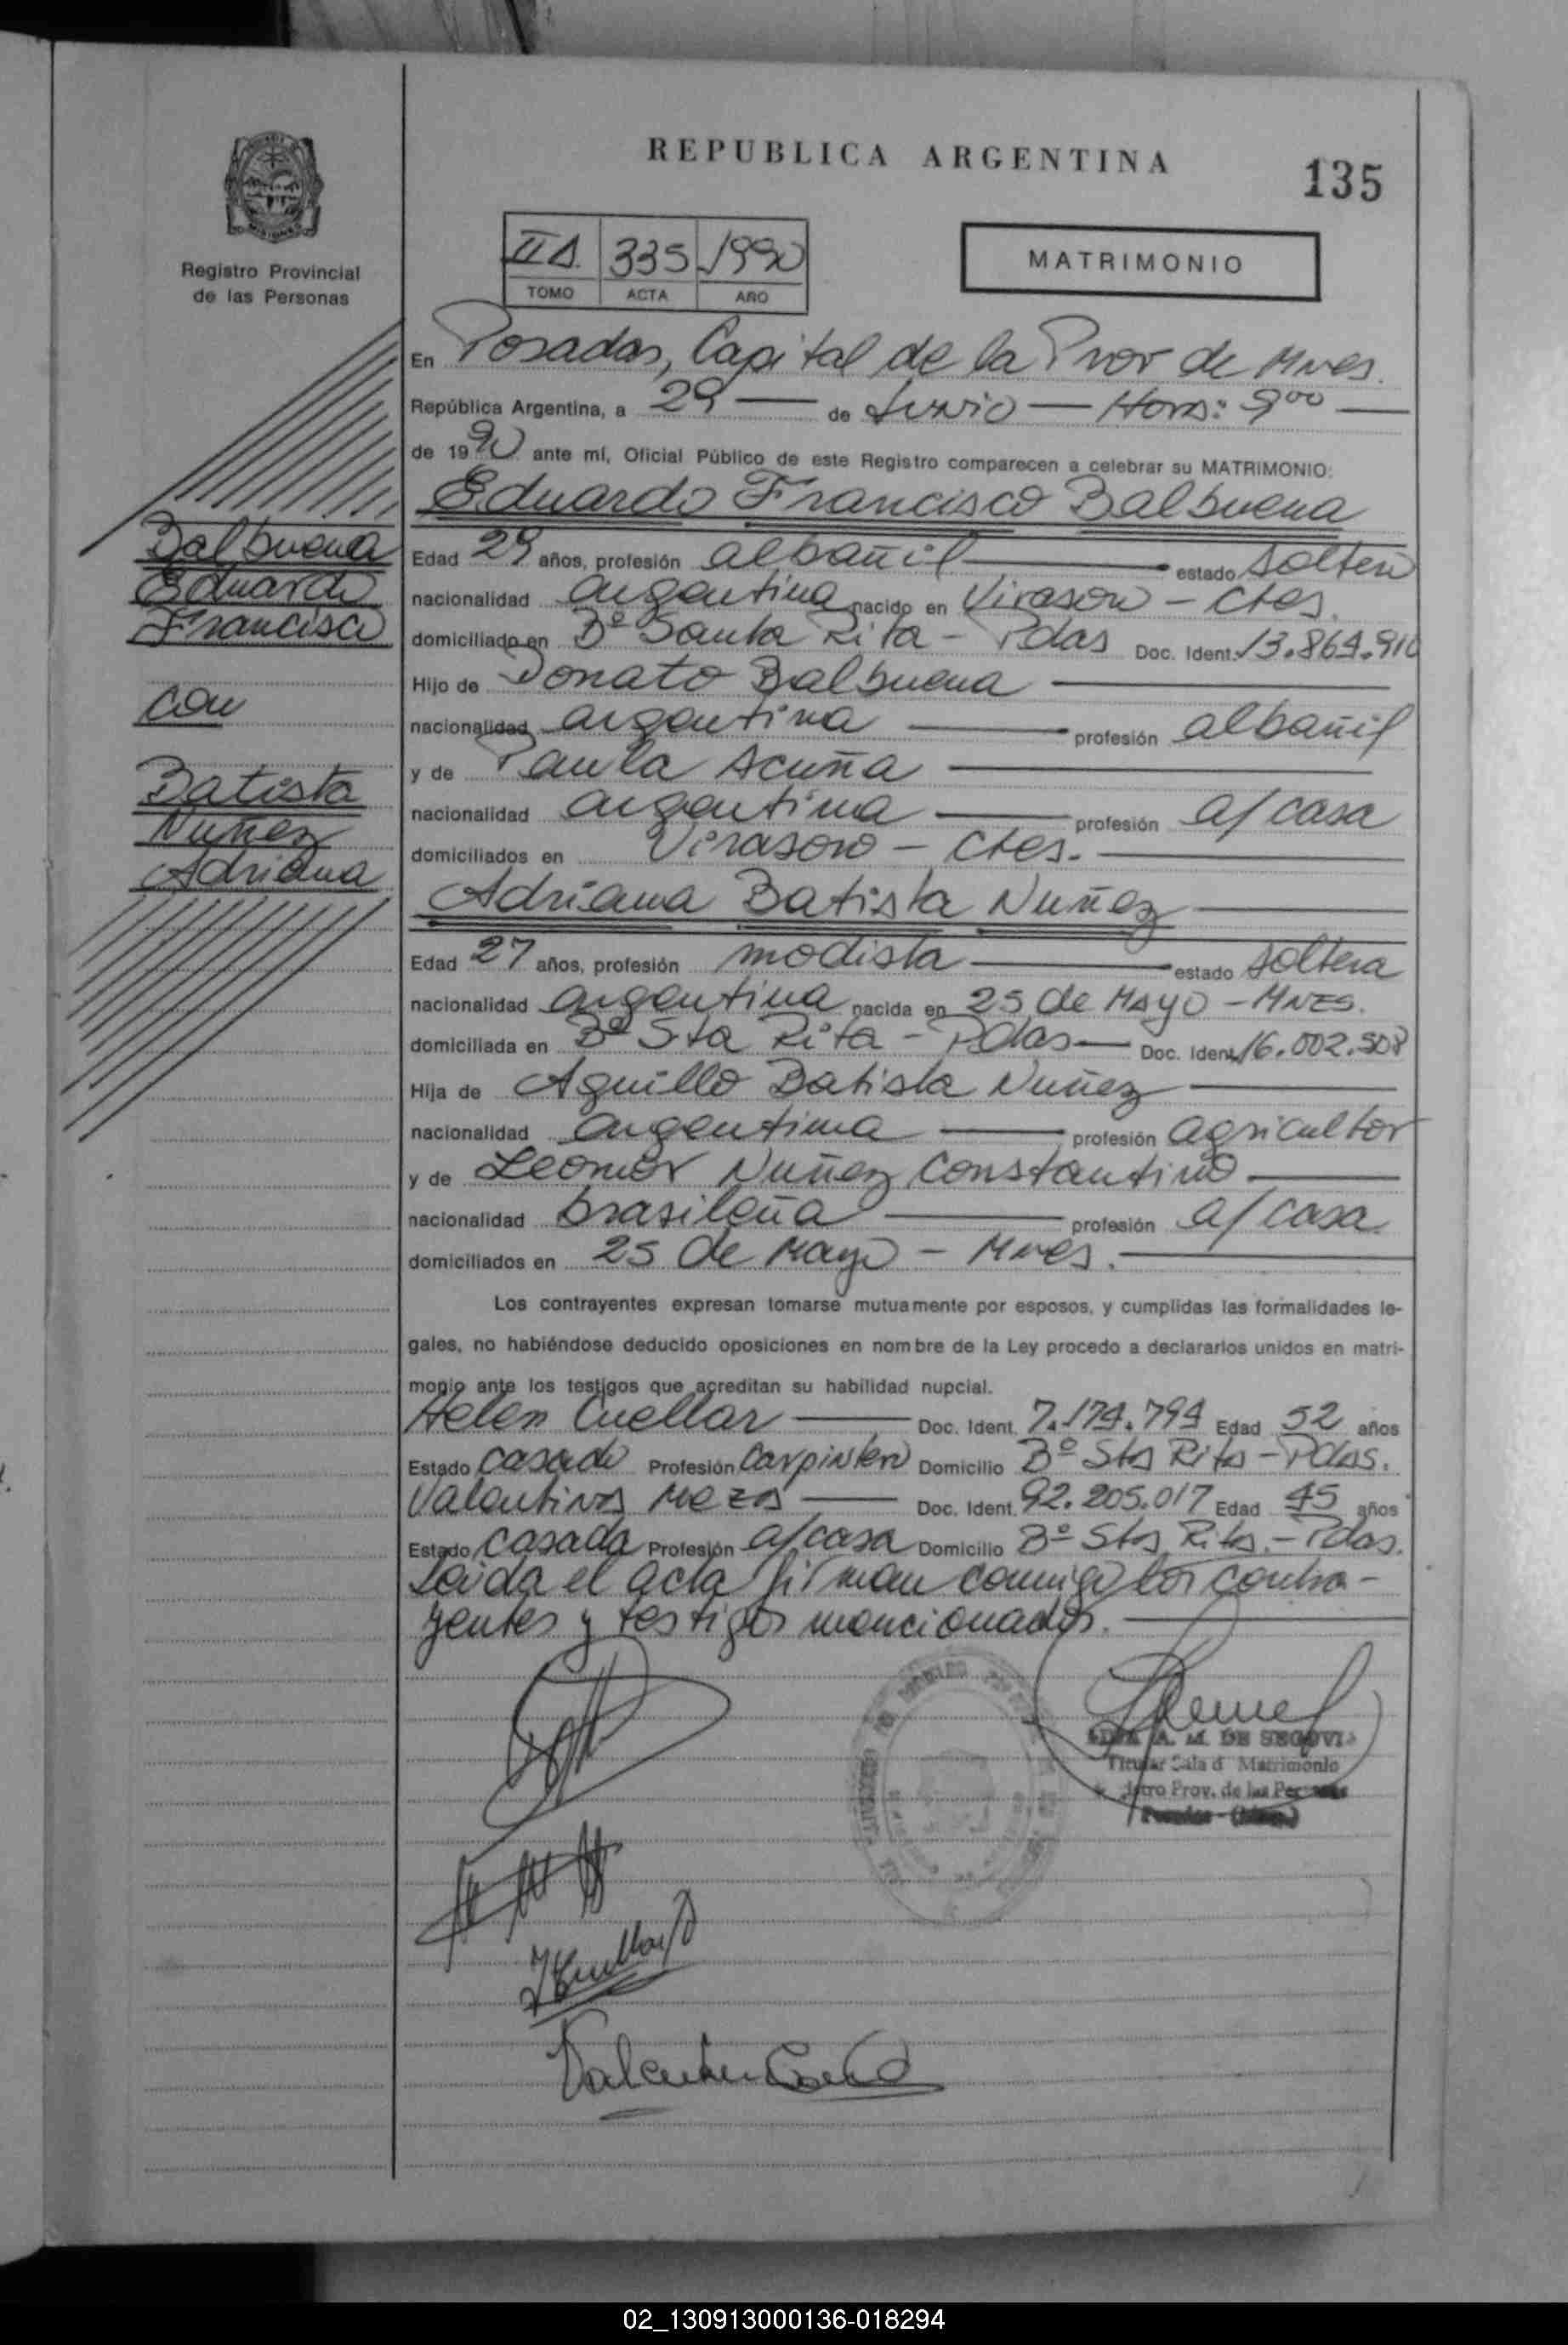 REPUBLICA ARGENTINA
135
Registro Provincial
de las Personas
II A 335 1990
TOMO ACTA AÑO
MATRIMONIO
En Posadas, Capital de la Prov de Mnes.
República Argentina, a 29 de Junio Hora: 9 00
de 1990 ante mí, Oficial Público de este Registro comparecen a celebrar su MATRIMONIO:
Eduardo Francisco Balbuena
Balbuena
Eduardo
Francisco
con
Batista
Nuñez
Adriana
Edad 29 años, profesión albañil estado soltero
nacionalidad argentina nacido en Virasoro - Ctes.
domiciliado en Bº Santa Rita - Pdas Doc. Ident. 13.864.910
Hijo de Donato Balbuena
nacionalidad argentina profesión albañil
y de Paula Acuña
nacionalidad argentina profesión a/casa
domiciliados en Virasoro - Ctes.
Adriana Batista Nuñez
Edad 27 años, profesión modista estado soltera
nacionalidad argentina nacida en 25 de Mayo - MNES.
domiciliada en Bº Sta Rita - Pdas Doc. Ident. 16.002.508
Hija de Aguillo Batista Nuñez
nacionalidad argentina profesión agricultor
y de Leonor Nuñez Constantino
nacionalidad brasileña profesión a/casa
domiciliados en 25 de Mayo - Mnes.
Los contrayentes expresan tomarse mutuamente por esposos, y cumplidas las formalidades le-
gales, no habiéndose deducido oposiciones en nombre de la Ley procedo a declararlos unidos en matri-
monio ante los testigos que acreditan su habilidad nupcial.
Helen Cuellar Doc. Ident. 7.174.794 Edad 52 años
Estado casado Profesión Carpintero Domicilio Bº Sta Rita - Pdas.
Valentina Meza Doc. Ident. 92.205.017 Edad 45 años
Estado casada Profesión a/casa Domicilio Bº Sta Rita. - Pdas.
Leida el acta firman conmigo los contra-
yentes y testigos mencionados.
A. M. DE SEGOVIA
Titular Sala d Matrimonio
Prov. de las Personas
02_130913000136-018294